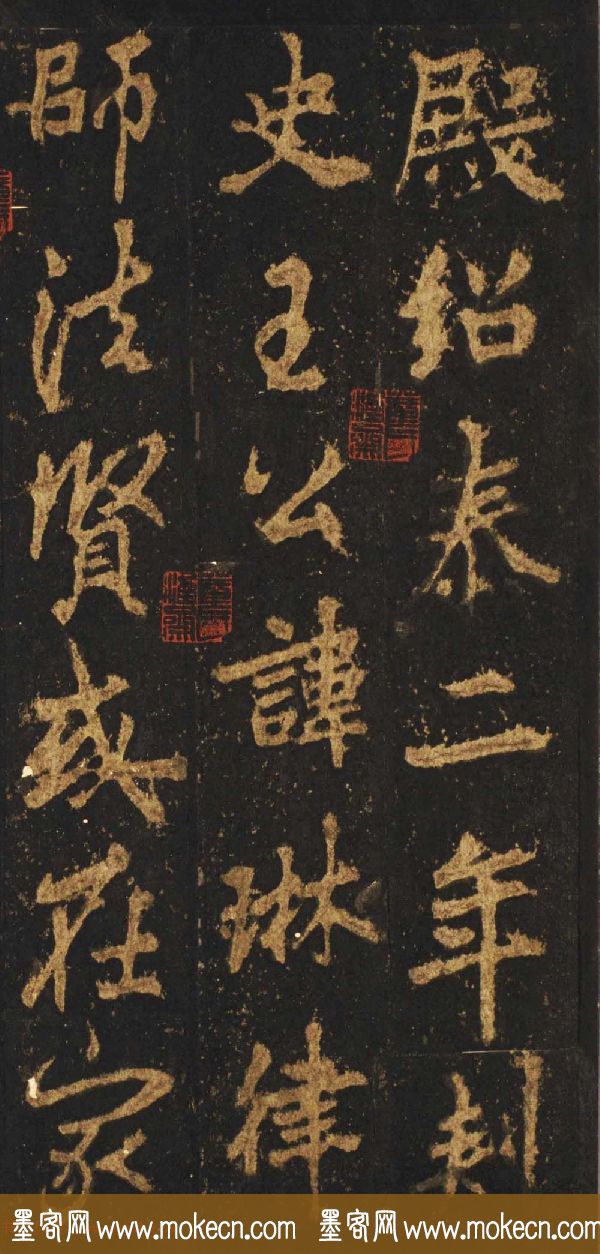 殿紹泰二年刺
史王公諱琳律
師法賢或在家
墨客网 www.mokecn.com 墨客网 www.mokecn.com